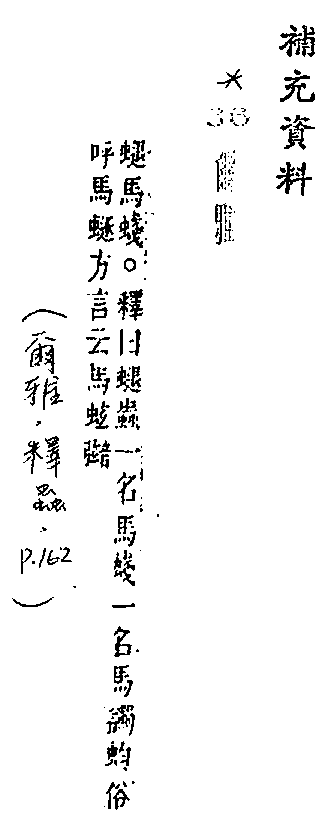 補充資料
*
36 爾雅
蛝馬䗃。釋曰蛝蟲一名馬䗃一名馬蠲蚐俗
呼馬䗤方言云馬蚿
(爾雅.釋蟲.P.162)